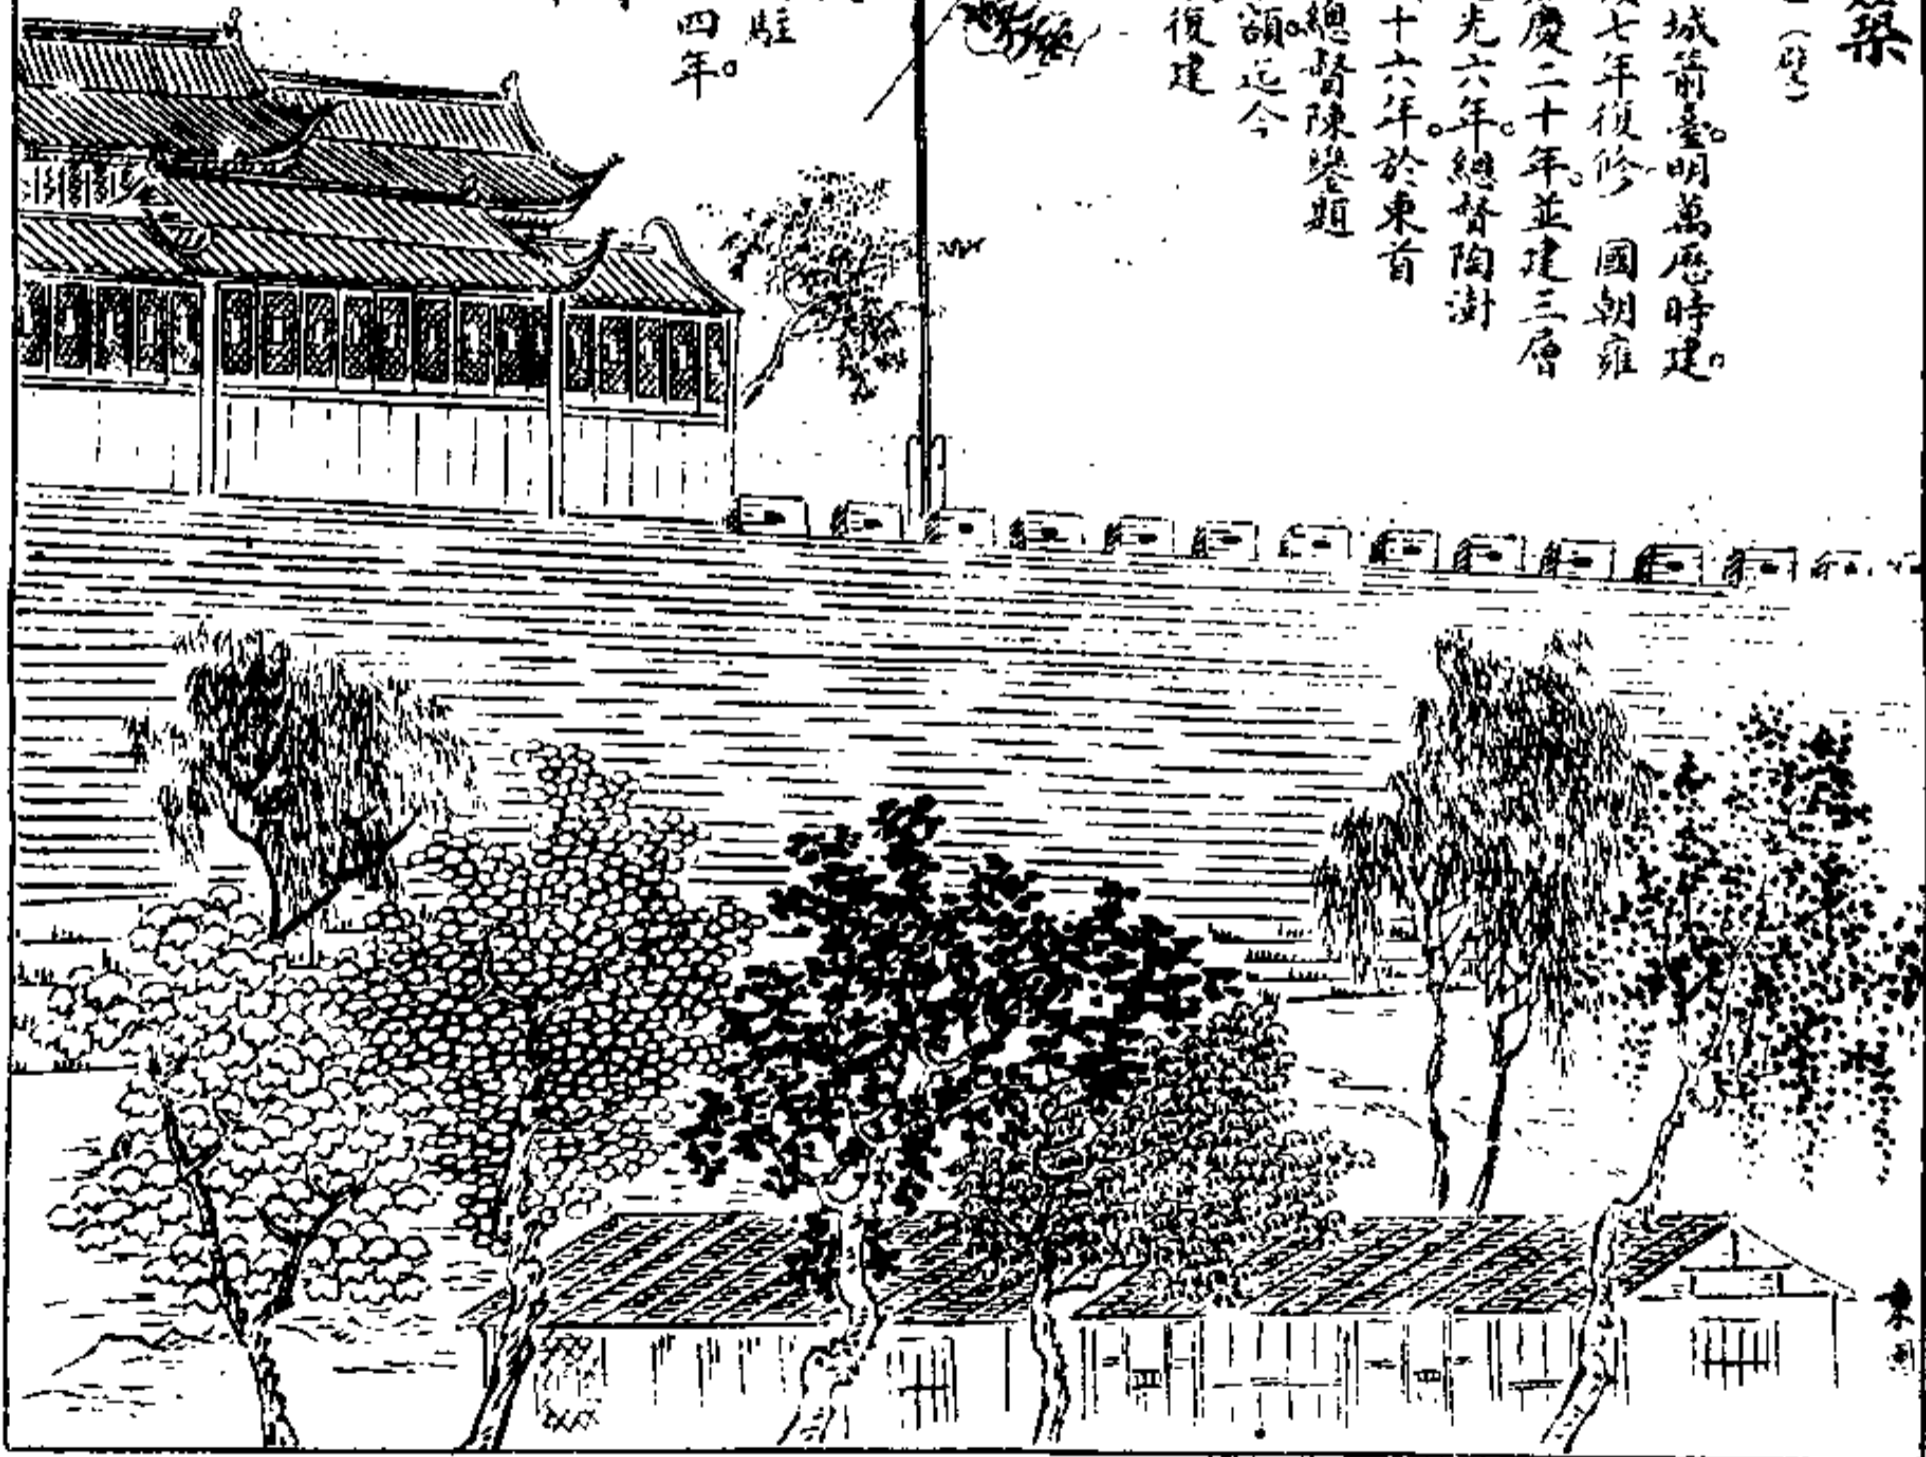 築
(壁)
城箭臺。明萬歷時建。
七年復修 國朝雍
慶二十年。並建三層
光六年。總督陶澍
十六年。於東首
總督陳鑾題
額。迄今
復建
駐
四年。